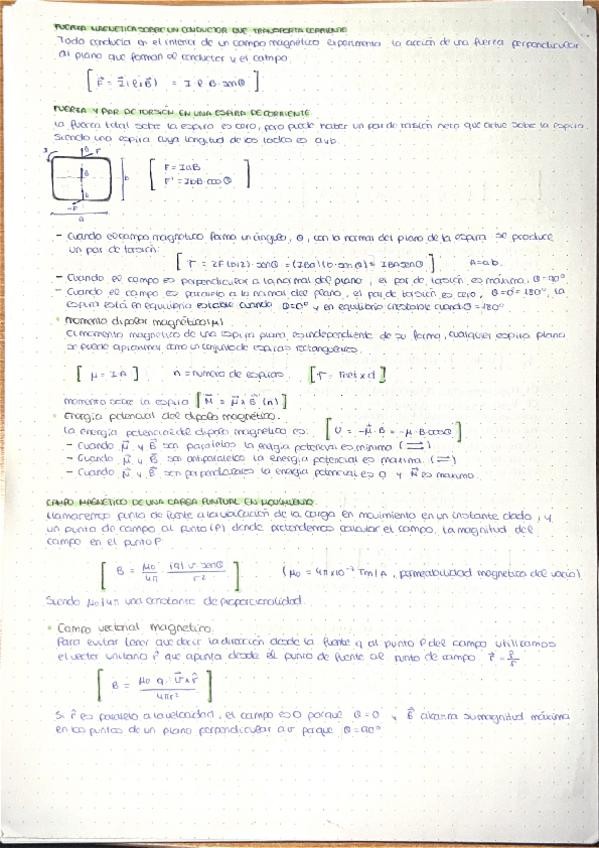 FUERZA MAGNETICA SOBRE UN CONDUCTOR QUE TRANSPORTA CORRIENTE
Todo conductor en el interior de un campo magnético experimenta la acción de una fuerza perpendicular
al plano que forman el conductor y el campo
[F⃗ = I(ℓ⃗ × B⃗) = I·ℓ·B·senθ]
FUERZA Y PAR DE TORSIÓN EN UNA ESPIRA DE CORRIENTE
La fuerza total sobre la espira es cero, pero puede haber un par de torsión neto que actue sobre la espira.
Siendo una espira cuya longitud de los lados es a y b.
[F = IaB
F' = IbB·cosθ]
b
-F
a
- Cuando el campo magnético forma un ángulo, θ, con la normal del plano de la espira se produce
un par de torsión:
[τ = 2F(b/2)·senθ = (IBa)(b·senθ) = IBAsenθ] A=ab.
- Cuando el campo es perpendicular a la normal del plano, el par de torsión es máximo, θ=90°
- Cuando el campo es paralelo a la normal del plano, el par de torsión es cero, θ=0°=180°, la
espira está en equilibrio estable cuando θ=0° y en equilibrio inestable cuando θ=180°
• Momento dipolar magnético (μ)
El momento magnético de una espira plana, es independiente de su forma, cualquier espira plana
se puede aproximar como un conjunto de espiras rectangulares.
[μ = IA] n = numero de espiras.
momento sobre la espira [M⃗ = μ⃗ × B⃗ (n)]
• Energía potencial del dipolo magnético.
La energía potencial del dipolo magnético es: [U = -μ⃗·B = -μ·B·cosθ]
- Cuando μ⃗ y B⃗ son paralelos la energía potencial es mínima (⇉)
- Cuando μ⃗ y B⃗ son antiparalelos la energía potencial es maxima (⇄)
- Cuando μ⃗ y B⃗ son perpendiculares la energía potencial es 0 y M⃗ es maximo.
CAMPO MAGNÉTICO DE UNA CARGA PUNTUAL EN MOVIMIENTO.
Llamaremos punto de fuente a la ubicación de la carga en movimiento en un instante dado, y
un punto de campo al punto (P) donde pretendemos calcular el campo. La magnitud del
campo en el punto P
[B = μ₀/4π · |q|·v·senθ/r²] (μ₀ = 4π×10⁻⁷ Tm/A, permeabilidad magnética del vacío)
Siendo μ₀/4π una constante de proporcionalidad.
• Campo vectorial magnético.
Para evitar tener que decir la dirección desde la fuente q al punto P del campo utilizamos
el vector unitario r̂ que apunta desde el punto de fuente al punto de campo. r̂ = r⃗/r
[B = μ₀·q·v⃗×r̂/4πr²]
Si r̂ es paralelo a la velocidad, el campo es 0 porque θ=0 y B⃗ alcanza su magnitud máxima
en los puntos de un plano perpendicular a v porque θ=90°